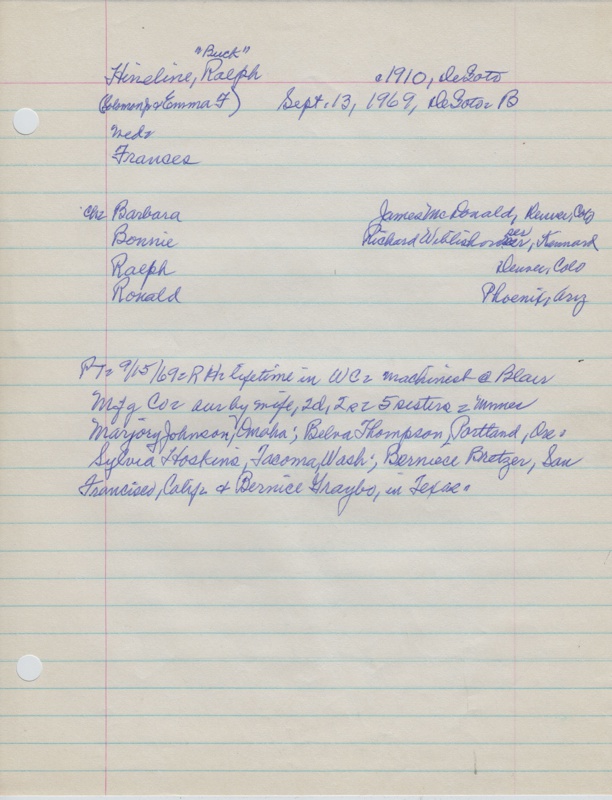 "Buck"
Hineline, Ralph c1910, DeSoto
(Solomon J & Emma F) Sept. 13, 1969, DeSoto= B
wed=
Frances
ch= Barbara James McDonald, Denver, Colo
Bonnie Richard, Kennard
Ralph Denver, Colo
Ronald Phoenix, Ariz
PT= 9/15/69= RH= lifetime in WC= machinest @ Blair
Mfg Co= sur by wife, 2d, 2s= 5 sisters = Mmes
Marjory Johnson, Omaha; Belva Thompson, Portland, Ore=
Sylvia Hoskins, Tacoma, Wash; Berniece Bretzer, San
Francisco, Calif= & Bernice Graybo, in Texas=